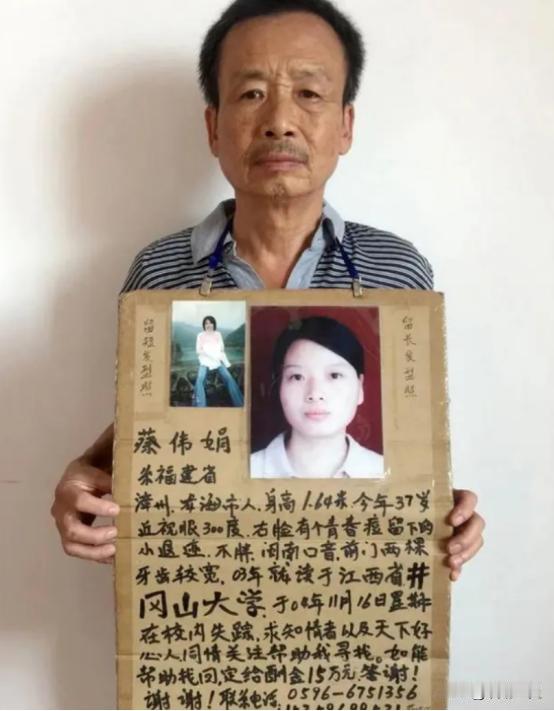 留短发型照
留长发型照
蔡伟娟
系福建省
漳州.龙海市人.身高1.64米.今年37岁
近视眼300度.右脸有个青春痘留下的
小退迹.不胖.闽南口音.前门两棵
牙齿较宽.03年就读于江西省井
冈山大学.于04年11月16日星期
在校内失踪.求知情者以及天下好
心人.同情关注帮助我寻找.如能
帮助找回.定给酬金15万元.答谢!
谢谢!联系电话 0596-6751356